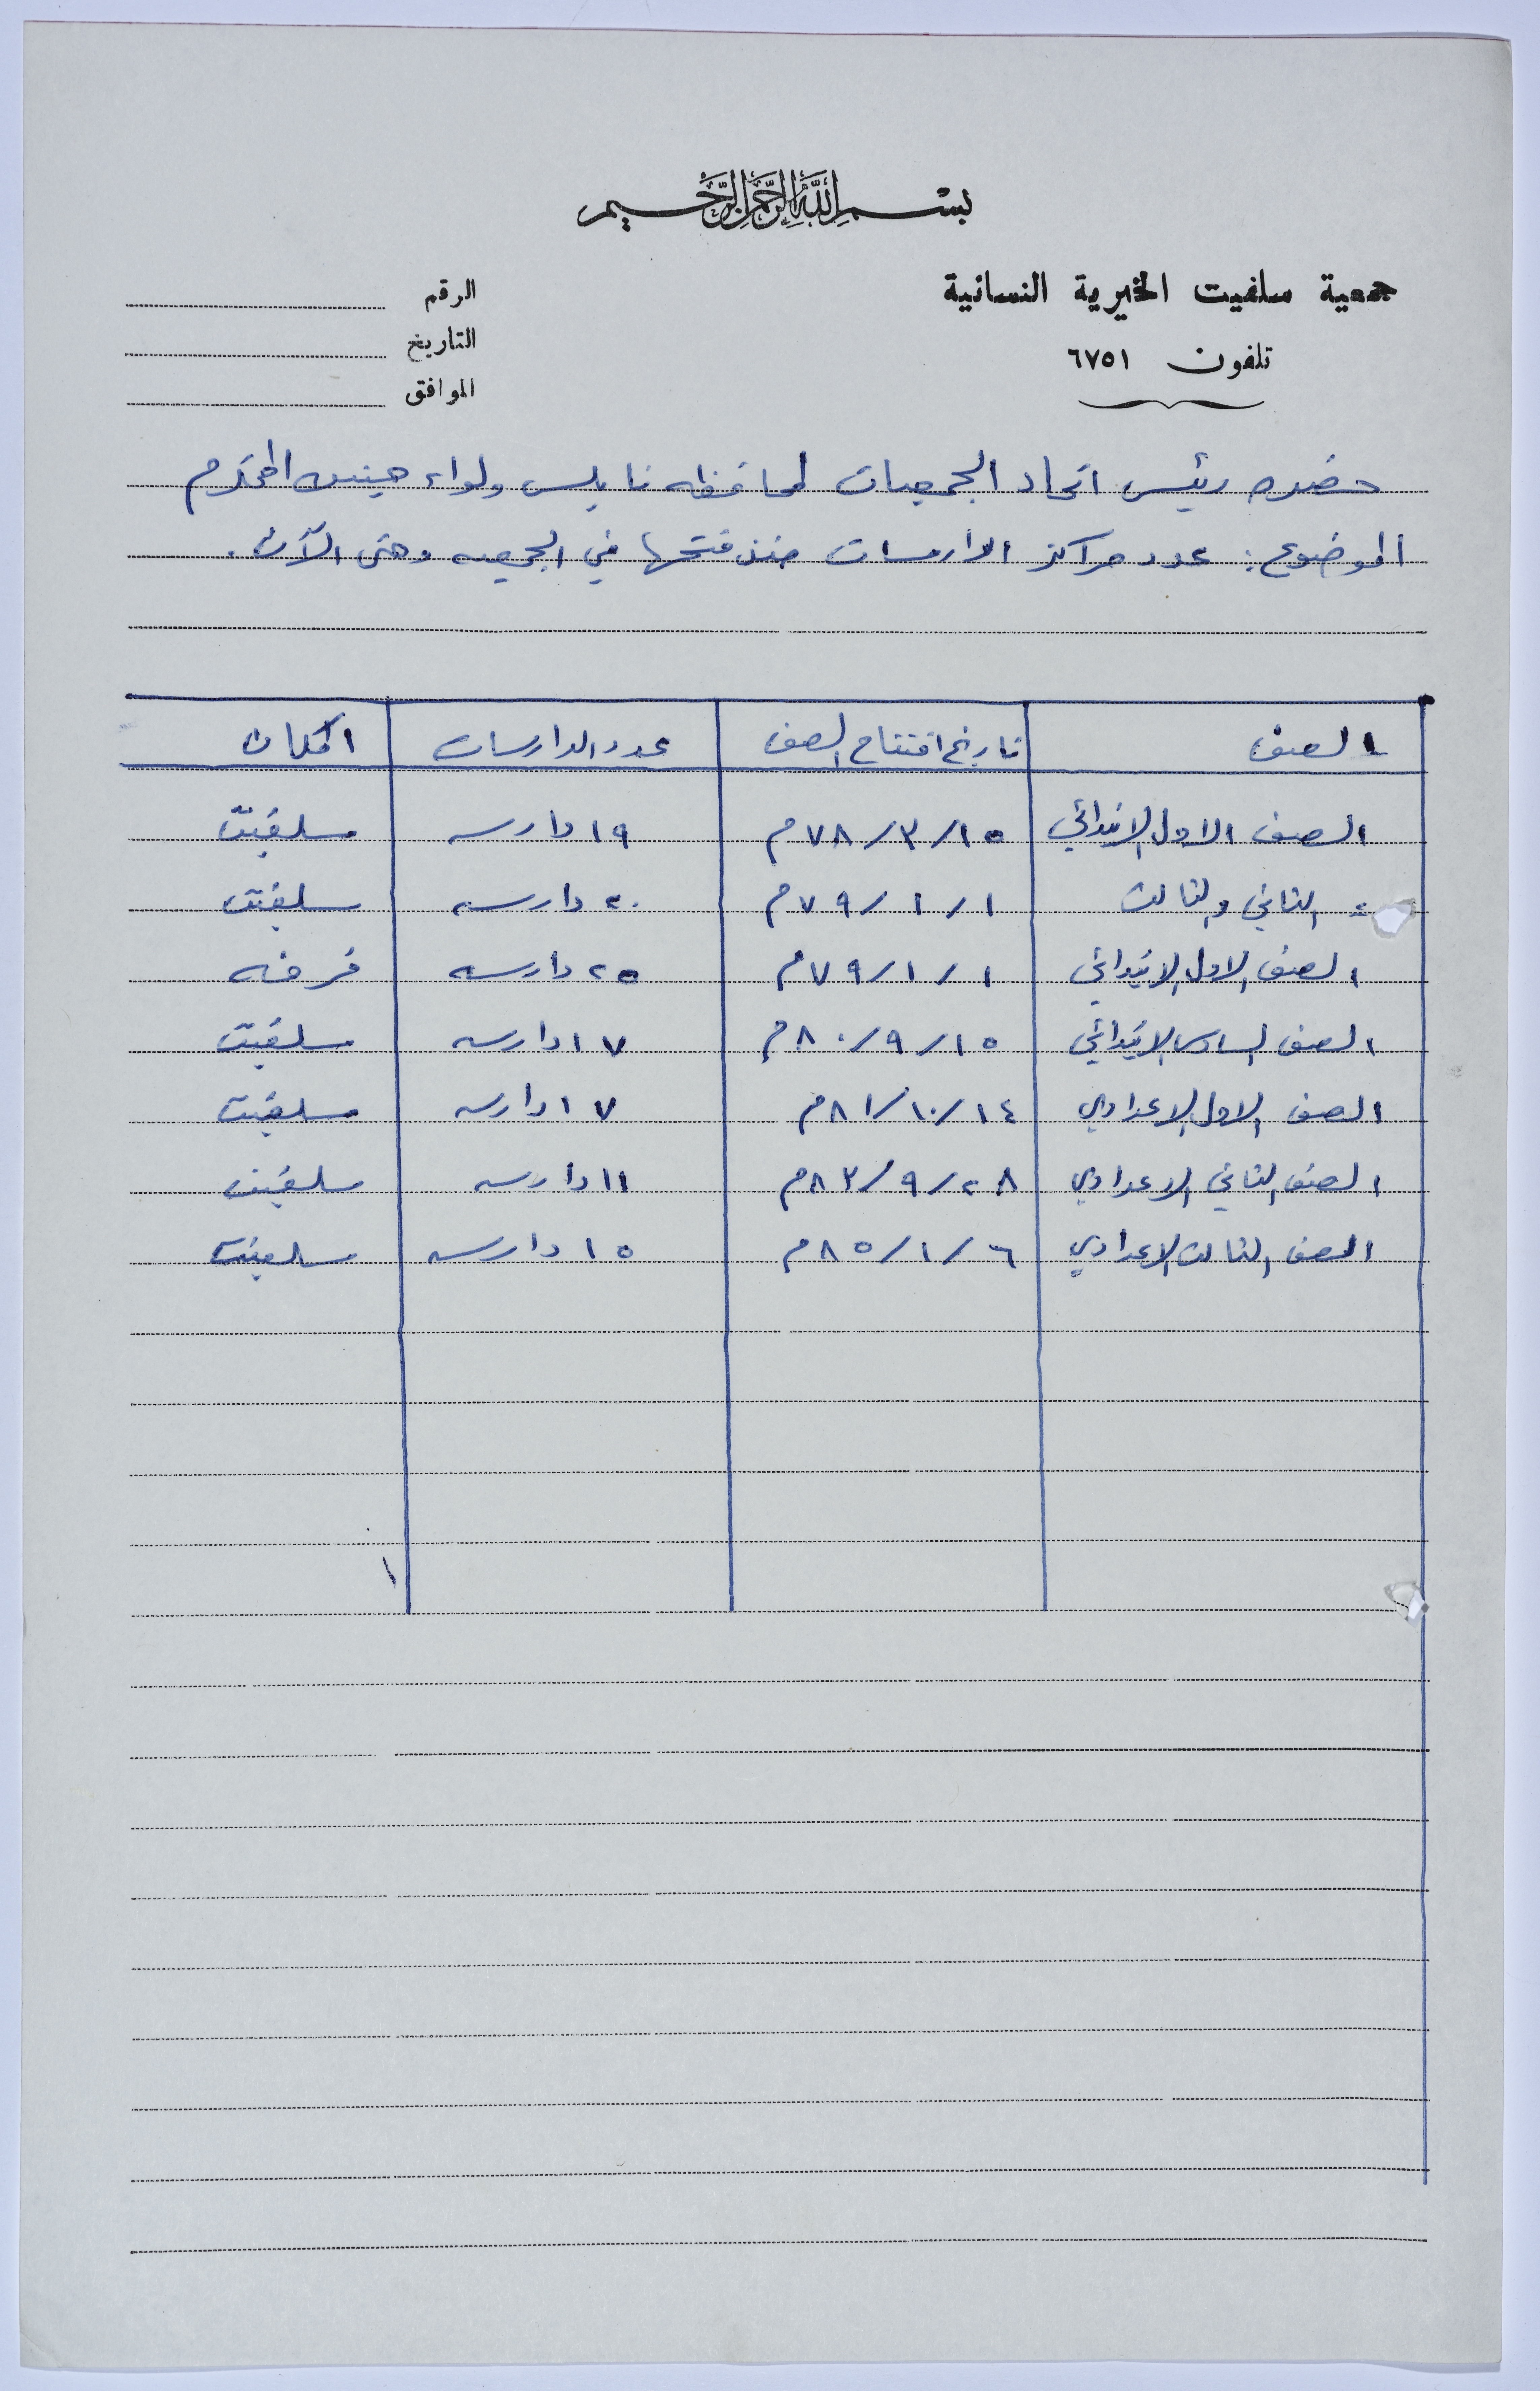 بسم الله الرحمن الرحيم
جمعية سلفيت الخيرية النسائية
تلفون ٦٧٥١
الرقم
التاريخ
الموافق
حضره رئيس اتحاد الجمعيات لمحافظه نابلس ولواء جنين المحترم
الموضوع: عدد مراكز الدارسات منذ فتحها في الجمعيه وحتى الآن.
الصف تاريخ افتتاح الصف عدد الدارسات المكان
الصف الاول الابتدائي ١٥/٣/٧٨م ١٩ دارسه سلفيت
= الثاني والثالث ١/١/٧٩م ٢٠ دارسه سلفيت
الصف الاول الابتدائي ١/١/٧٩م ٢٥ دارسه فرخه
الصف السادس الابتدائي ١٥/٩/٨٠م ١٧ دارسه سلفيت
الصف الاول الاعدادي ١٤/١٠/٨١م ١٧ دارسه سلفيت
الصف الثاني الاعدادي ٢٨/٩/٨٣م ١١ دارسه سلفيت
الصف الثالث الاعدادي ٦/١/٨٥م ١٥ دارسه سلفيت